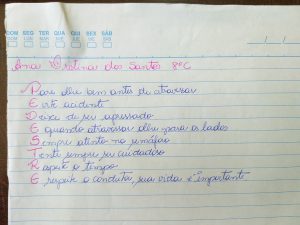 DOM SEG TER QUA QUI SEX SÁB
Ana Cristina dos Santos 8ºC
Pare olhe bem antes de atravessar
Evite acidente
Deixe de ser apressado
E quando atravessar olhe para os lados
Sempre atento no semáforo
Tente sempre ser cuidadoso
Respeite o tempo
E respeite o conduta, sua vida é importante